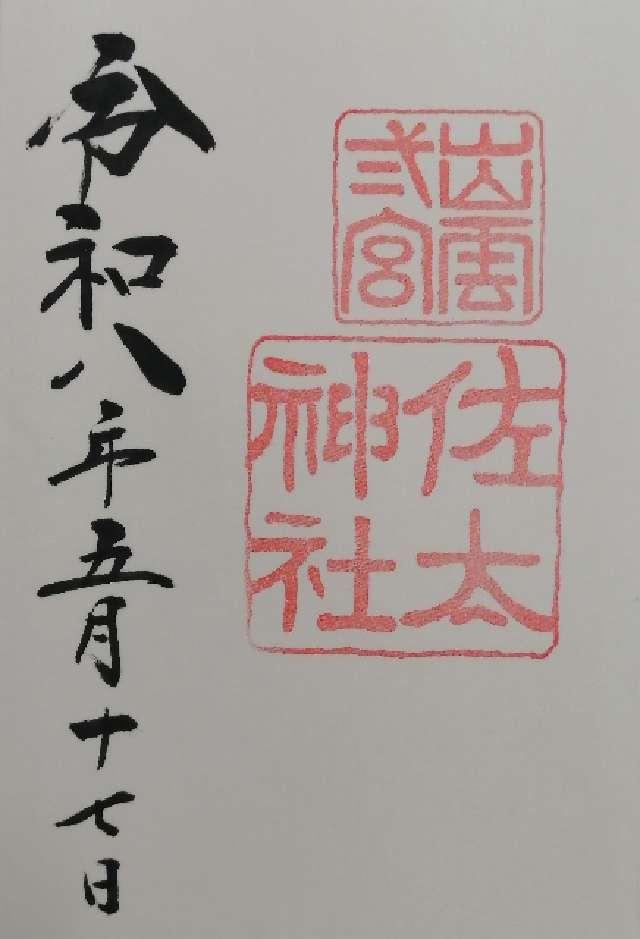 出雲
弐宮
佐太
神社
令和八年五月十七日